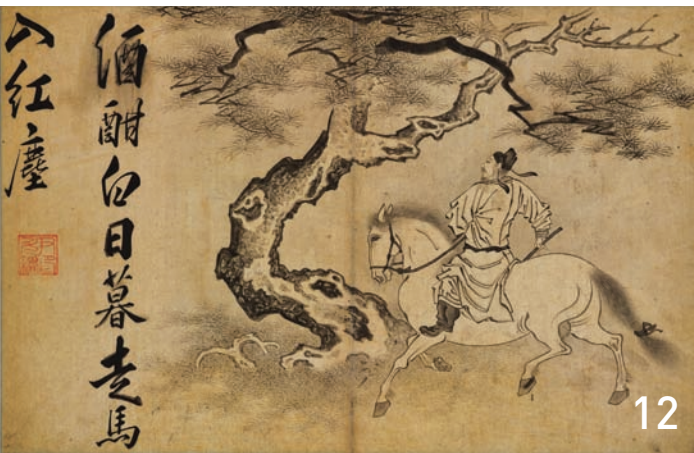 酒酣白日暮走馬
入紅塵
12